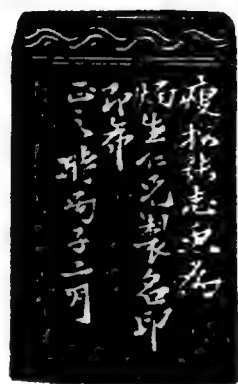 瘦松張志魚為
生仁兄製名印
即希
正之 時丙子二月